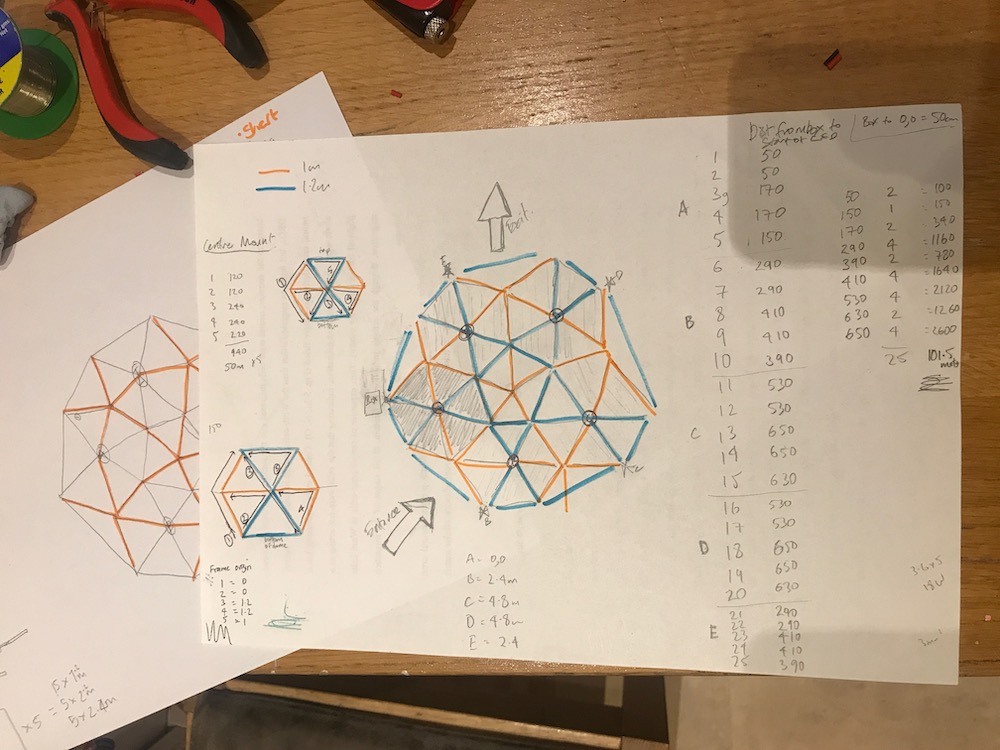 Short
1m
1.2m
Centre Mount
1 120
2 120
3 240
4 240
5 220
440
top
bottom
150
bottom
of dome
Frame origin
1 = 0
2 = 0
3 = 1.2
4 = 1.2
5 = 1
Exit
E
D
Box
C
B
Entrance
A = 0,0
B = 2.4m
C = 4.8m
D = 4.8m
E = 2.4
Dist from box to
start of LED
Box to 0,0 = 50cm
1 50
2 50
3 170
A
4 170
5 150
6 290
7 290
B
8 410
9 410
10 390
11 530
12 530
C
13 650
14 650
15 630
16 530
17 530
D
18 650
19 650
20 630
21 290
22 290
E
23 410
24 410
25 390
50 2 = 100
150 1 = 150
170 2 = 340
290 4 = 1160
390 2 = 780
410 4 = 1640
530 4 = 2120
630 2 = 1260
650 4 = 2600
25 101.5
3.6 x 5
5 x 1.2m
x5 = 5 x 2.4m
5 x 2.4m